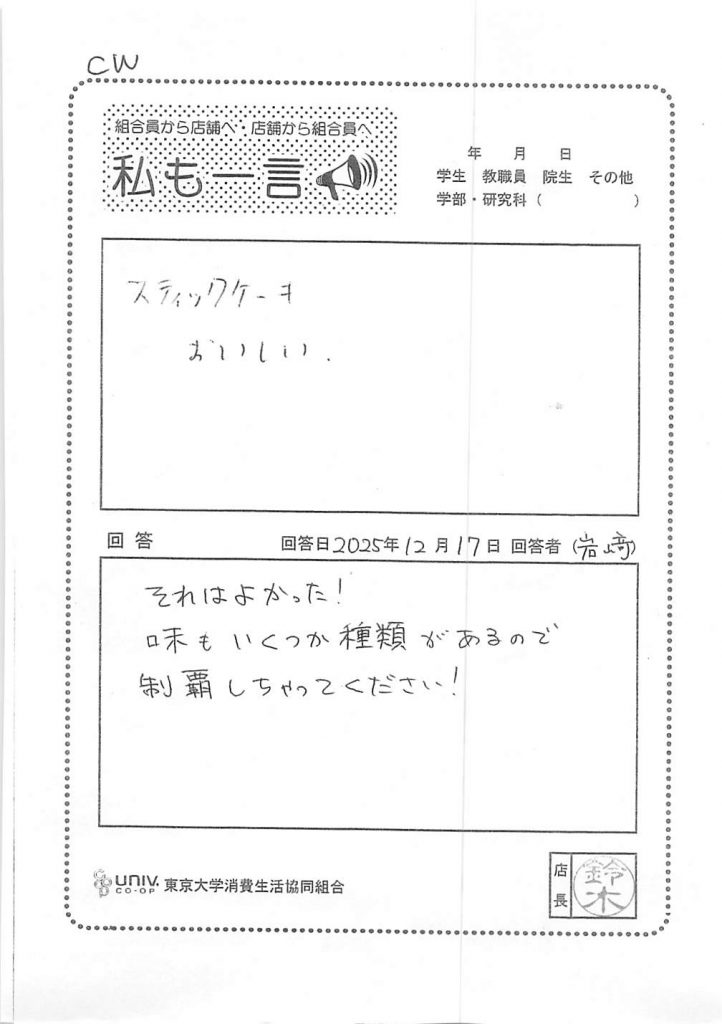 CW
組合員から店舗へ・店舗から組合員へ
私も一言
年 月 日
学生 教職員 院生 その他
学部・研究科( )
スティックケーキ
おいしい.
回答 回答日2025年12月17日 回答者(岩崎)
それはよかった!
味もいくつか種類があるので
制覇しちゃってください!
UNIV. CO-OP 東京大学消費生活協同組合
店長 鈴木